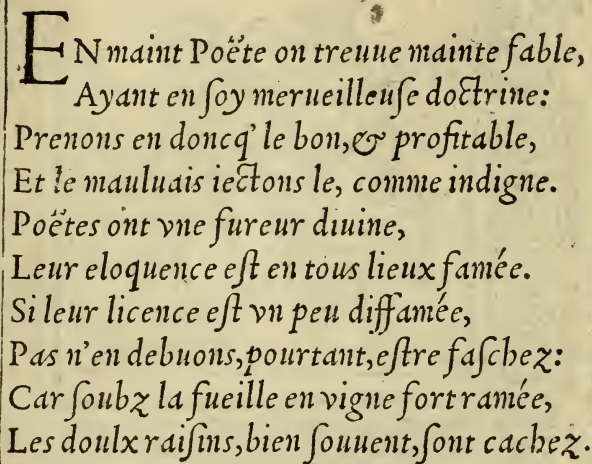 EN maint Poëte on treuue mainte fable,
Ayant en ſoy merueilleuſe doctrine:
Prenons en doncq' le bon, & profitable,
Et le mauluais iectons le, comme indigne.
Poëtes ont vne fureur diuine,
Leur eloquence eſt en tous lieux famée.
Si leur licence eſt vn peu diffamée,
Pas n'en debuons, pourtant, eſtre faſchez:
Car ſoubz la fueille en vigne fort ramée,
Les doulx raiſins, bien ſouuent, ſont cachez.